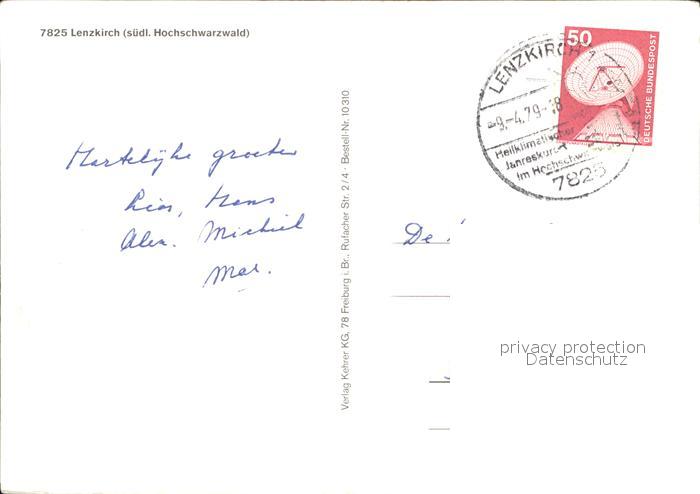 7825 Lenzkirch (südl. Hochschwarzwald)
Hartelijke groeten
Lies, Hans
Alex. Michiel
Mar.
Verlag Kehrer KG, 78 Freiburg i. Br., Rufacher Str. 2/4 · Bestell-Nr. 10310
LENZKIRCH 1
-9.-4.79-18
Heilklimatischer
Jahreskurort
im Hochschwarzwald
7825
50
DEUTSCHE BUNDESPOST
De
privacy protection
Datenschutz